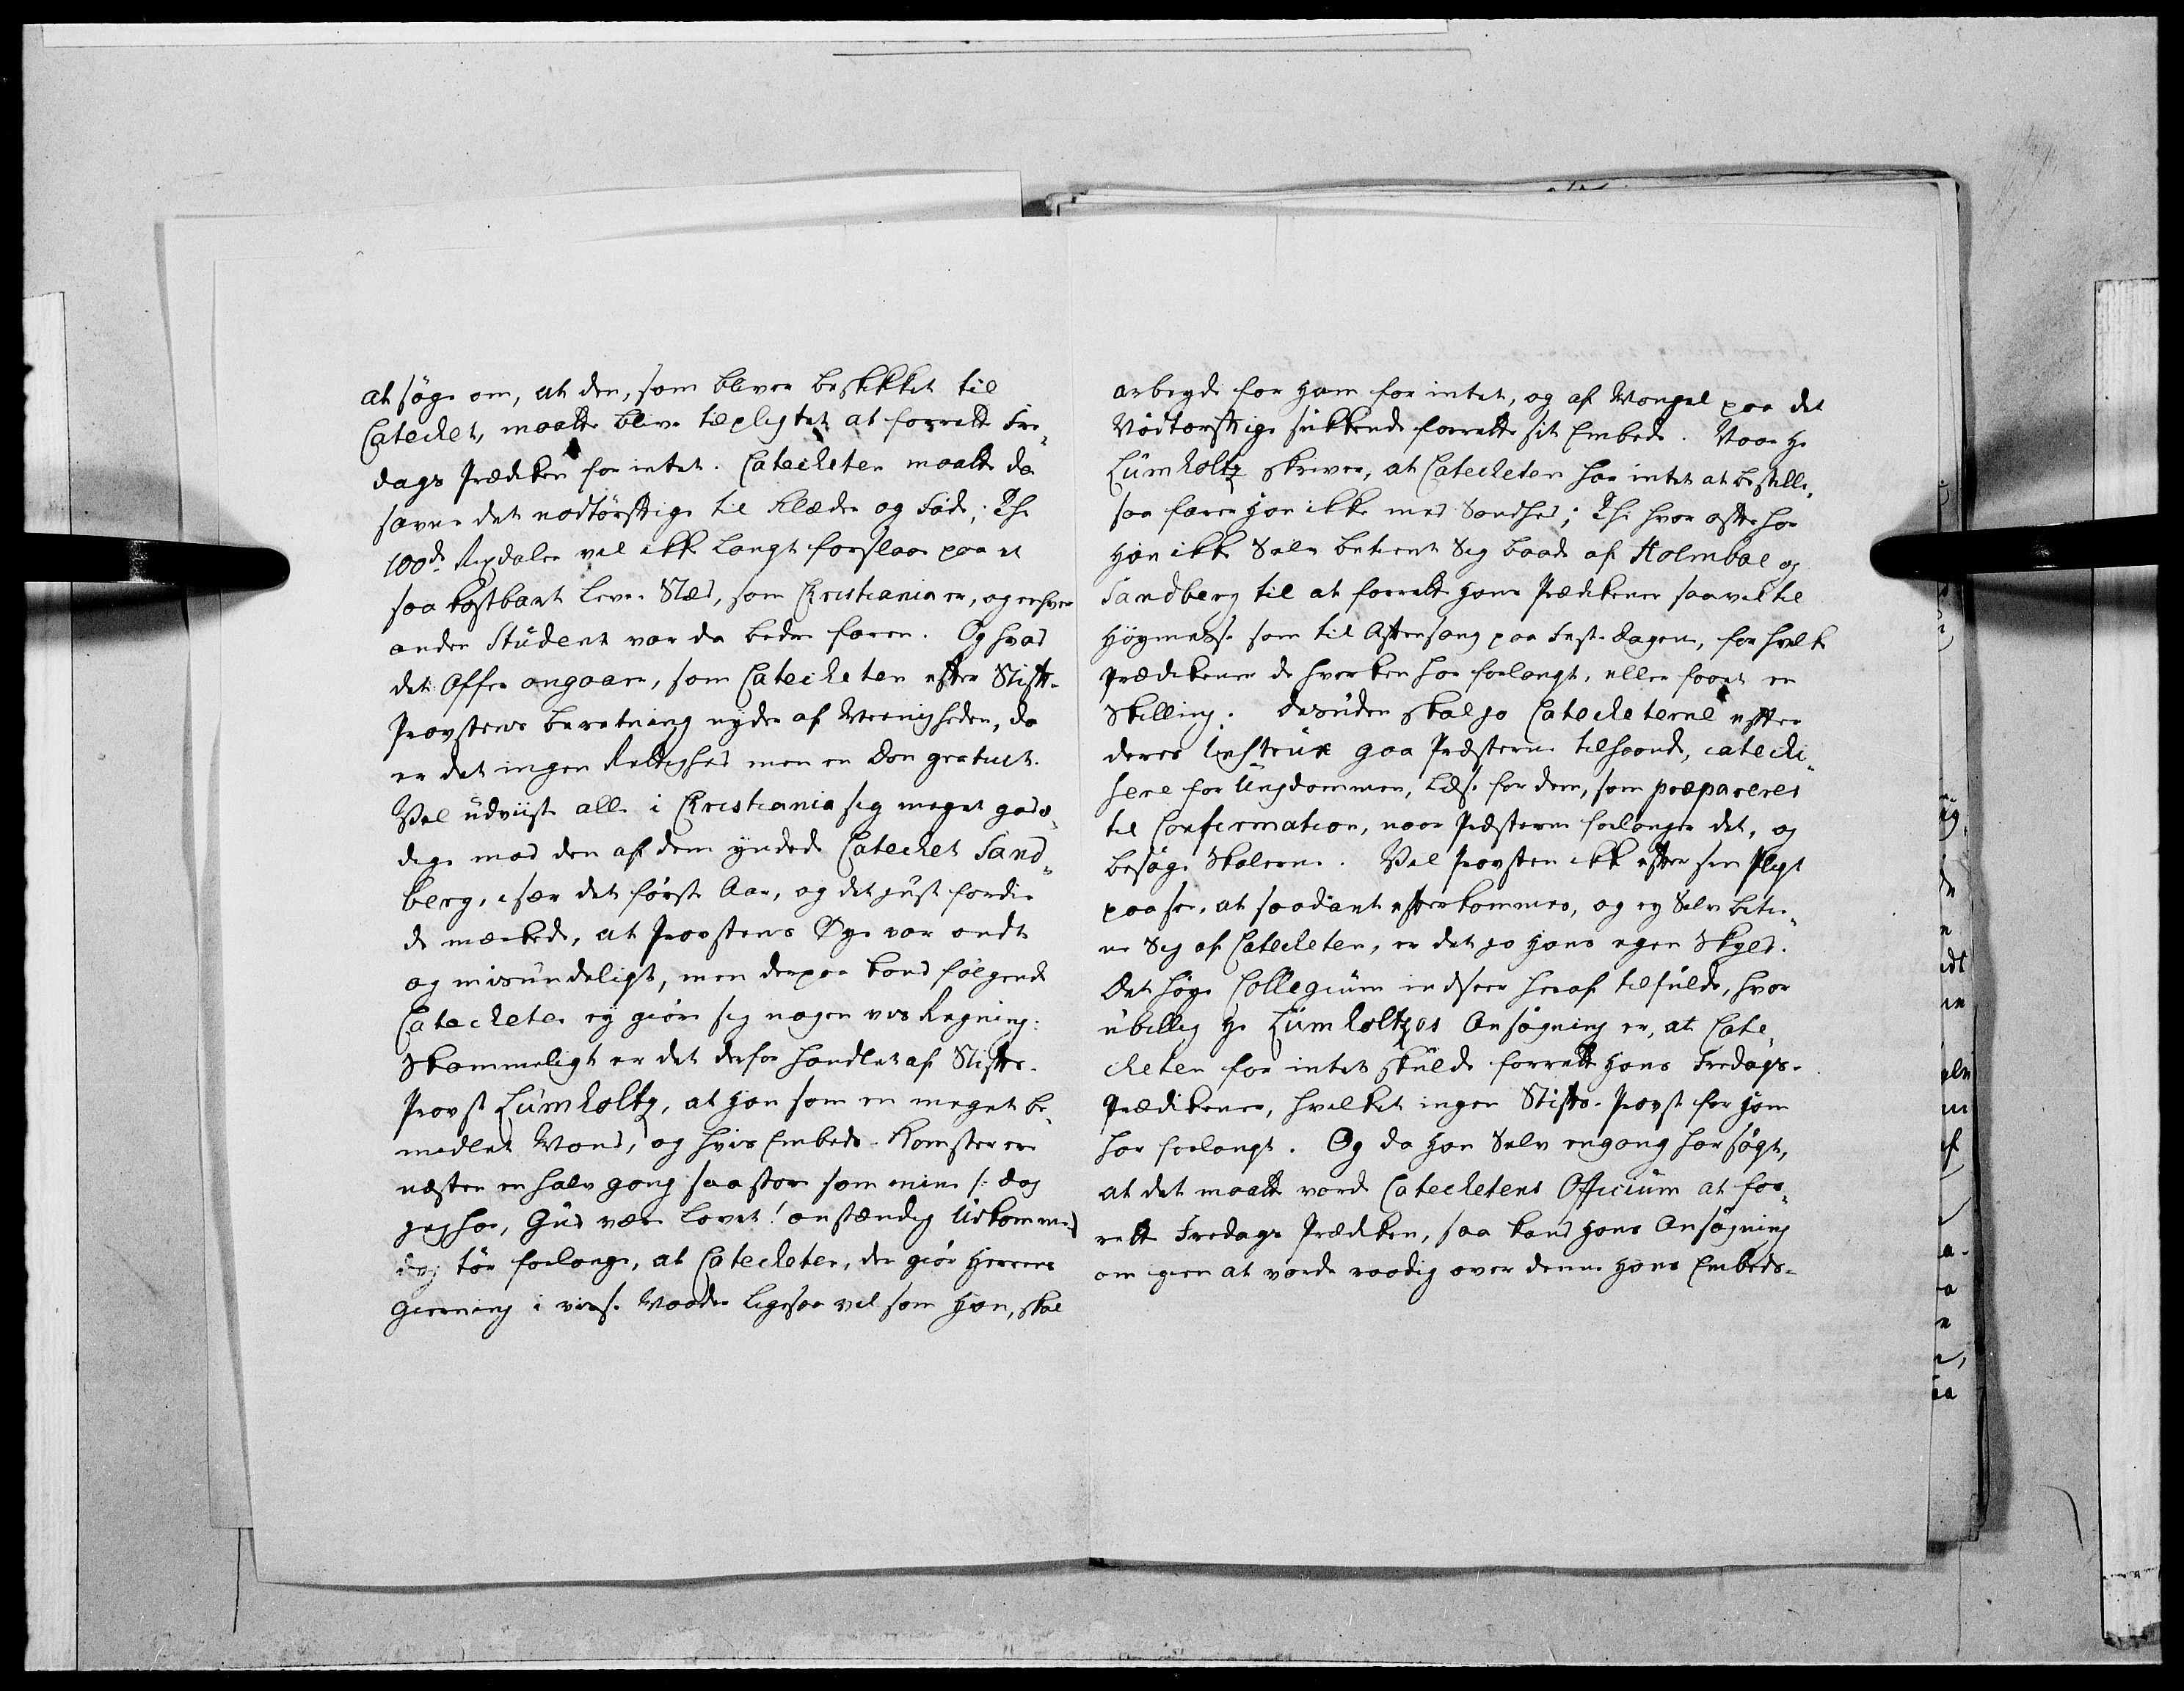 at søge om, at den, som bliver beskikket til
Catechet, maatte blive tilpligtet at forrette Fre¬
dags Prædiken for intet. Catecheten maatte da
savne det nødtørftige til Klæder og Føde; Thi
100de Rixdaler vil ikke langt forslaae paa et
saa kostbart leve-Stæd, som Christiania er, og enhver
anden Student var da bedre faren. Og hvad
det Offer angaaer, som Catecheten efter Stift-
Provstens beretning nyder af Meenigheden, da
er det ingen Rettighed men en Don gratuit.
Vel udviiste alle i Christiania sig meget gavd¬
dige mod den af dem yndede Catechet Sand¬
berg, især det første Aar, og det just fordi
de mærkede, at Provstens Øye var ondt
og misundeligt, men derpaa kand følgende
Catecheter ey giøre sig nogen vis Regning:
Skammeligt er det derfor handlet af Stifts-
Provst Lumholtz, at Han som en meget be¬
midlet Mand, og hvis Embeds-Komster ere
næsten en halv gang saa store som mine /: dog
jeg har, Gud være lovet! anstændig Udkomme:/
dog tør forlange, at Catecheten, der giør Herrens
Gierning i visse Maader ligesaa vel som Han, skal
arbeyde for Ham for intet, og af Mangel paa det
Nødtørftige sukkende forrette sit Embede. Naar Hr
Lumholtz skriver, at Catecheten har intet at bestille,
saa farer Han ikke med Sandhed; Thi hvor ofte har
Han ikke Selv betient Sig baade af Holmboe og
Sandberg til at forrette Hans Prædikener saavel til
Høymesse som til Aftensang paa Fest-Dagene, for hvilke
Prædikener de hverken har forlangt, eller faaet en
Skilling. Desuden skal jo Catecheterne efter
deres Instrux gaa Præsterne tilhaande, catechi¬
sere for Ungdommen, læse for dem, som præpareres
til Confirmation, naar Præsterne forlanger det, og
besøge Skolerne. Vil Provsten ikke efter sin Pligt
paasee, at saadant efterkommes, og ey Selv betie¬
ne Sig af Catecheten, er det jo Hans egen Skyld.
Det høye Collegium indseer heraf tilfulde, hvor
ubillig Hr Lumholtzes Ansøgning er, at Cate¬
cheten for intet skulde forrette Hans Fredags-
Prædikener, hvilket ingen Stifts-Provst før Ham
har forlangt. Og da Han Selv engang har søgt,
at det maatte vorde Catechetens Officium at for¬
rette Fredags Prædiken, saa kand Hans Ansøgning
om igien at vorde raadig over denne Hans Embeds-